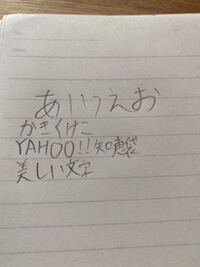 No.
Date
あいうえお
かきくけこ
YAHOO!!知恵袋
美しい文字